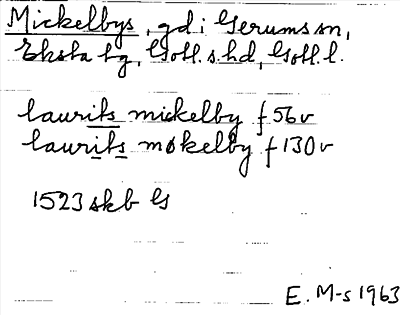 Mickelbys, gd i Gerums sn,
Eksta tg, Gotl. s. hd, Gotl. l.
laurits mickelby f 56v
laurits mokelby f 130v
1523 skb G
E. M-s 1963